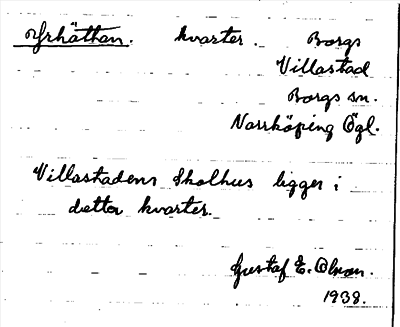 Yrhättan. kvarter. Borgs
Villastad
Borgs sn.
Norrköping Ögl.
Villastadens Skolhus ligger i
detta kvarter.
Gustaf E. Olson.
1938.